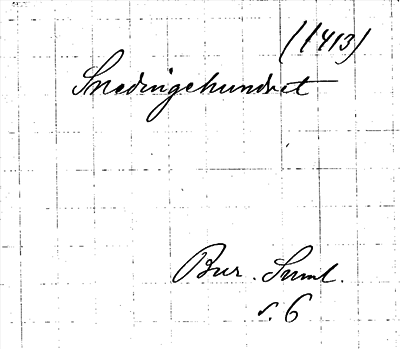 (1413)
Snedingehundret
Bur. Suml.
s. 6